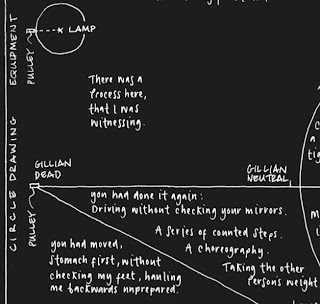 CIRCLE DRAWING EQUIPMENT
LAMP
PULLEY
There was a
Process here,
that I was
witnessing.
GILLIAN
DEAD
GILLIAN
NEUTRAL
PULLEY
you had done it again:
Driving without checking your mirrors.
A series of counted steps.
A choreography.
Taking the other
Persons weight
you had moved,
stomach first, without
checking my feet, hauling
me backwards unprepared.